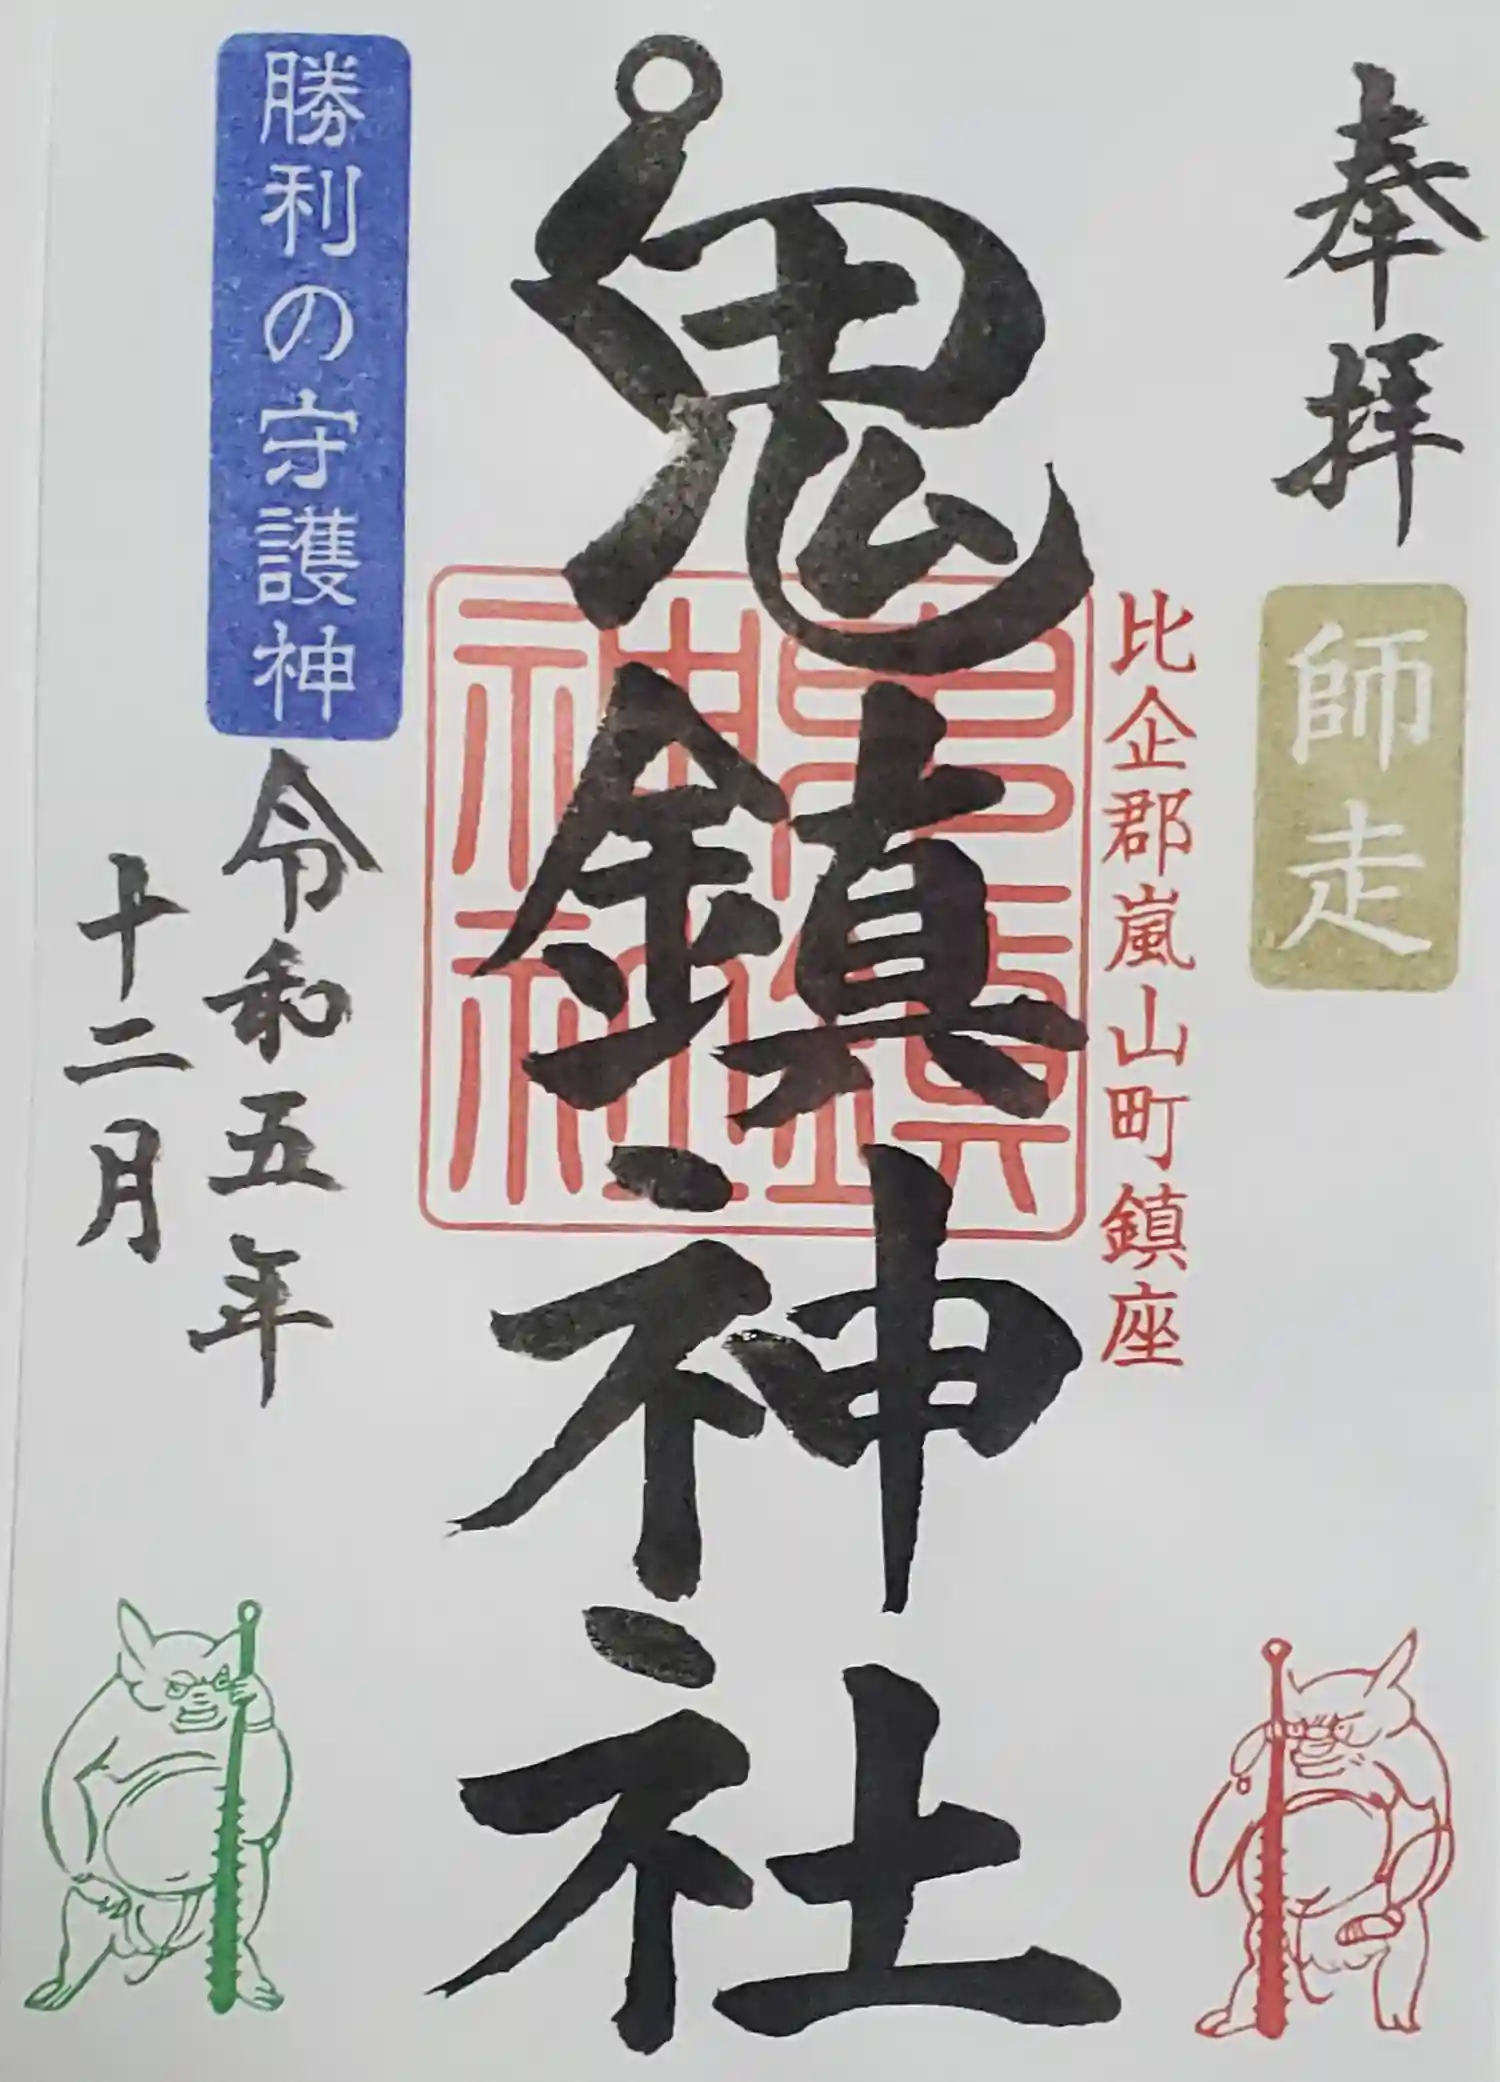 奉拝
師走
比企郡嵐山町鎮座
鬼鎮神社
鬼鎮
神社
勝利の守護神
令和五年
十二月